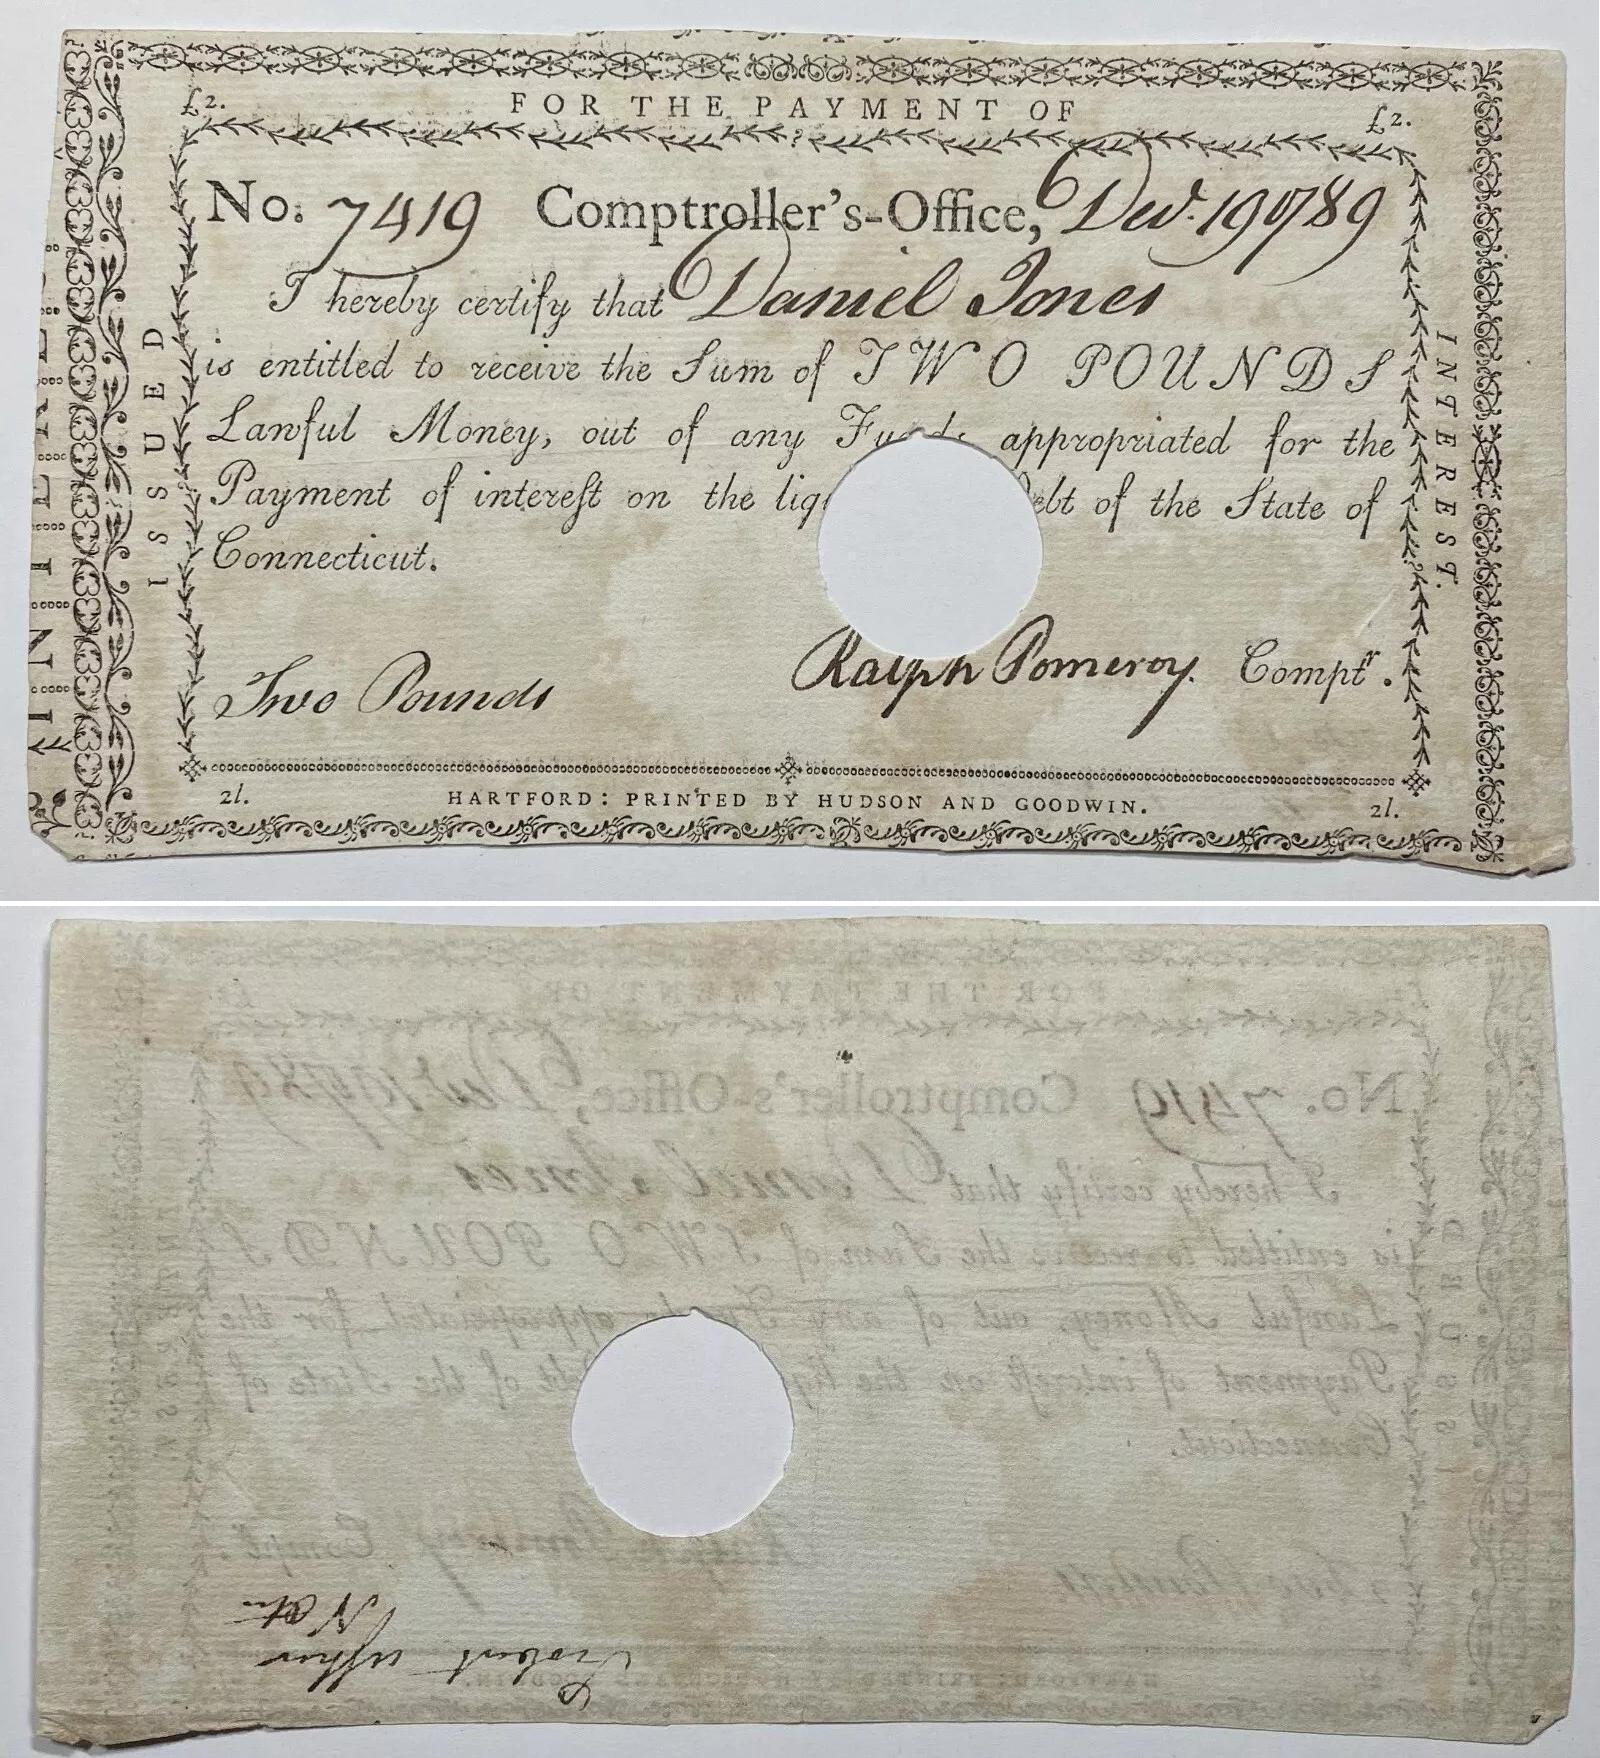 £2. FOR THE PAYMENT OF £2.
No. 7419 Comptroller's-Office, Decr. 19 1789
I hereby certify that Daniel Jones
is entitled to receive the Sum of TWO POUNDS
Lawful Money, out of any Funds appropriated for the
Payment of intereſt on the liq Debt of the State of
Connecticut.
Two Pounds Ralph Pomeroy. Comptr.
2l. HARTFORD: PRINTED BY HUDSON AND GOODWIN. 2l.
ISSUED
INTEREST.
INTERE